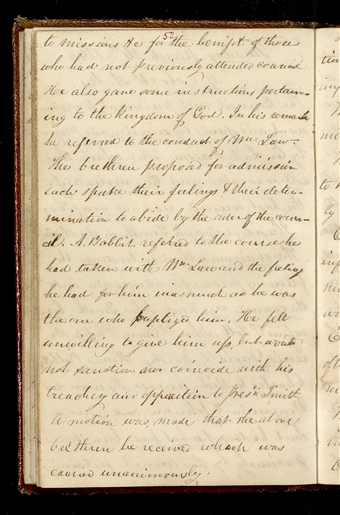 52
to missions &c for the benifit of those
who had not previously attended council
He also gave some instructions pertain-
ing to the Kingdom of God. In his remarks
he referred to the conduct of Wm Law.
The brethren proposed for admission
each spoke their feelings & their deter-
mination to abide by the order of the coun-
cil. A. Babbit referred to the course he
had taken with Wm Law and the feelings
he had for him inasmuch as he was
the one who baptized him. He felt
unwilling to give him up, but would
not sanction nor coincide with his
treachery and opposition to Prest Smith
A motion was made that the above
brethren be received which was
carried unanimously.